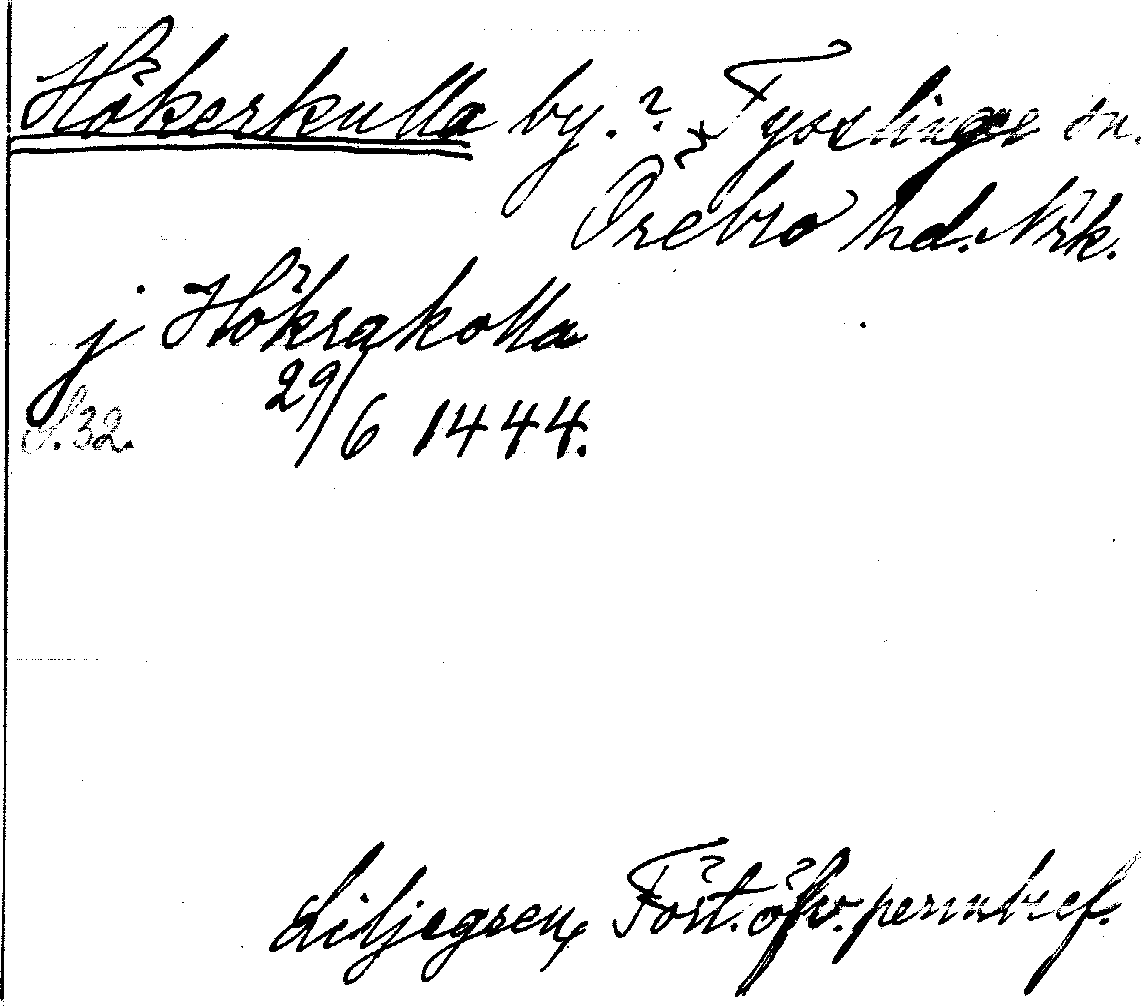 Hökerkulla by.? Tysslinge sn.
Örebro hd. Nrk.
j Hökrakolla
29/6 1444.
S. 32.
Liljegren, Fört. öfv. permbref.